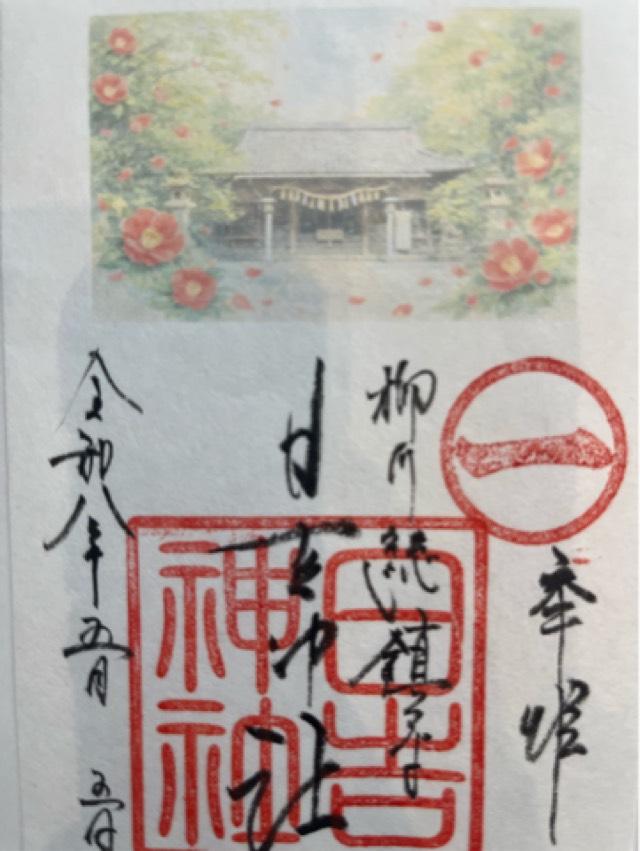 一
奉拝
柳川総鎮守
日吉神社
日吉
神社
令和八年五月五日